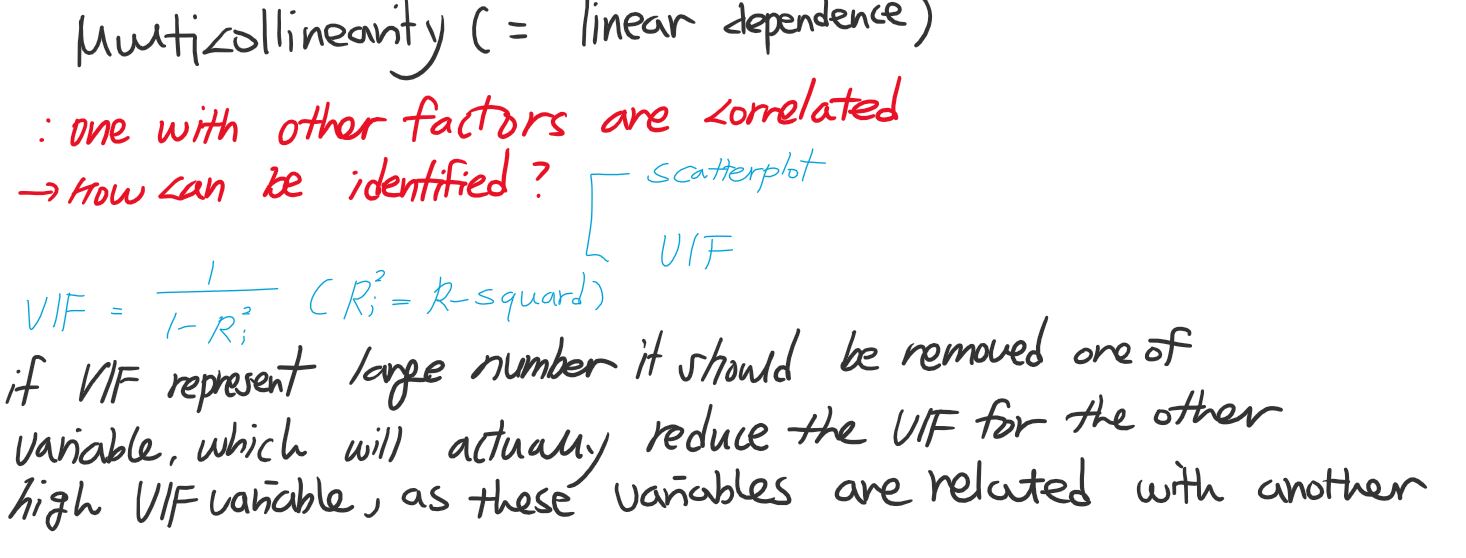 Multicollinearity (= linear dependence)
: one with other factors are correlated
→ How can be identified?
scatterplot
VIF
VIF = 1 / (1 - Ri²) (Ri² = R-squard)
if VIF represent large number it should be removed one of
variable, which will actually reduce the VIF for the other
high VIF variable, as these variables are related with another